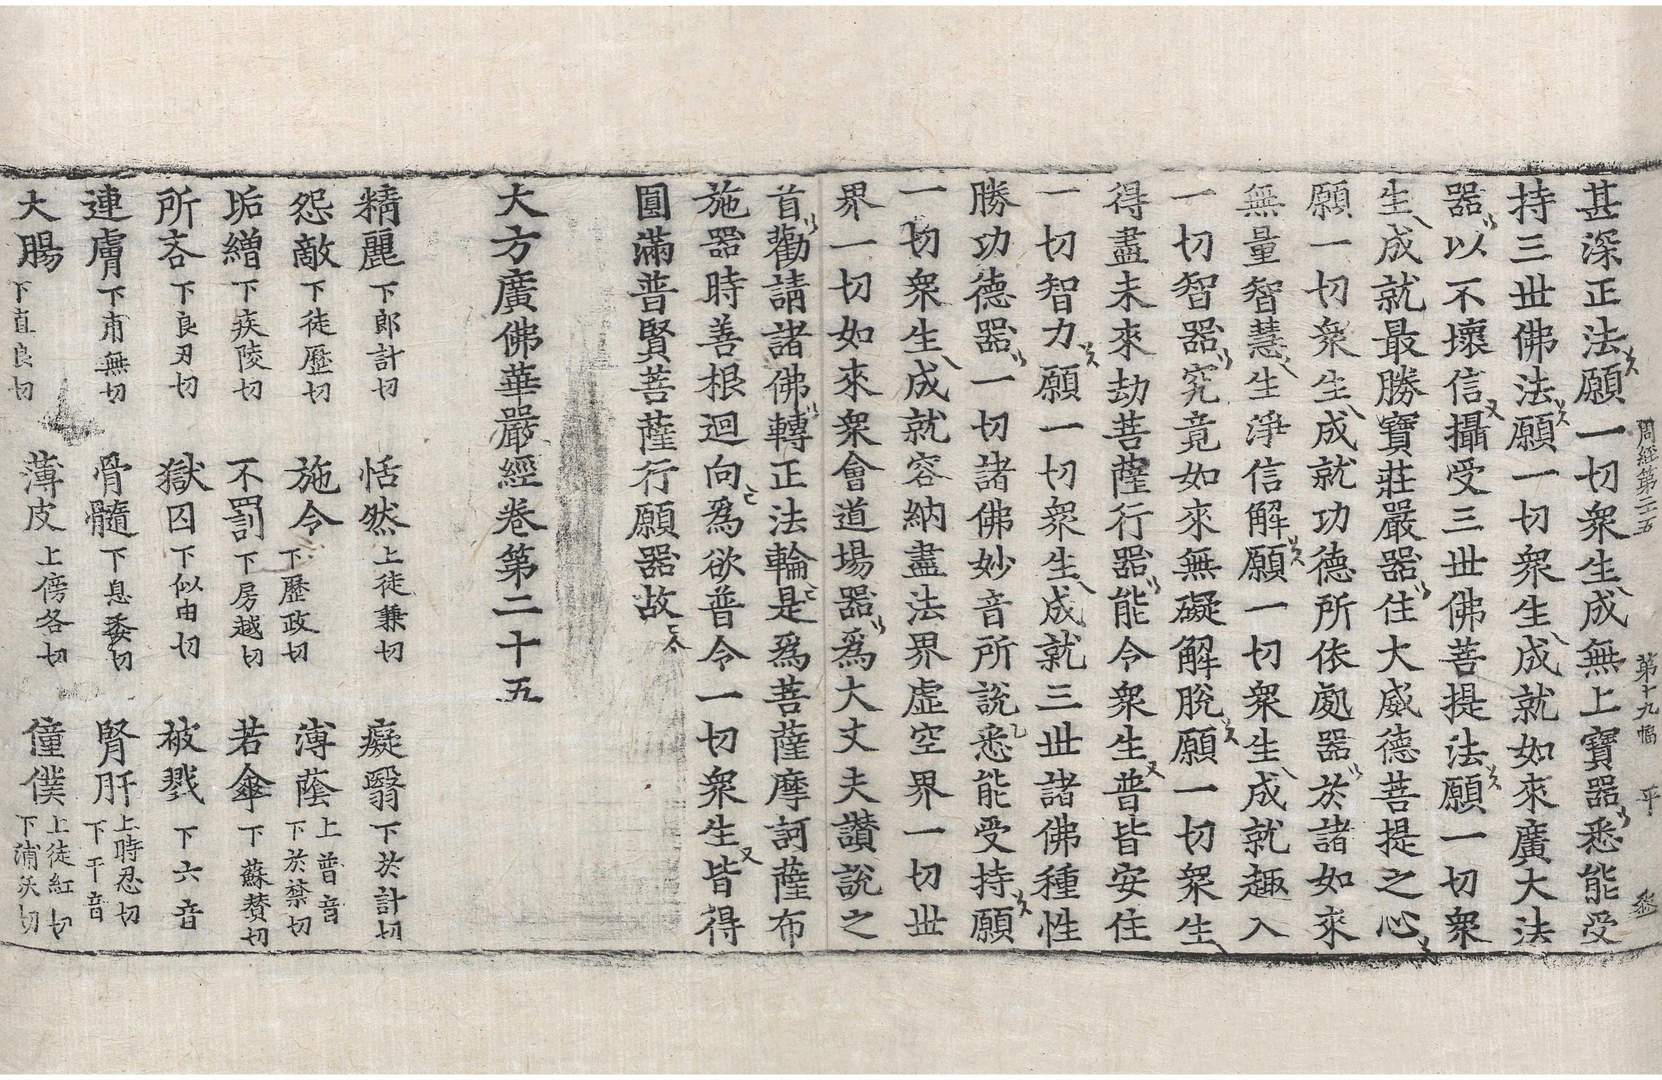 周經第二十五　第十九幅　平
甚深正法願一切衆生成無上寶器悉能受
持三世佛法願一切衆生成就如來廣大法
器以不壞信攝受三世佛菩提法願一切衆
生成就最勝寶莊嚴器住大威德菩提之心
願一切衆生成就功德所依處器於諸如來
無量智慧生淨信解願一切衆生成就趣入
一切智器究竟如來無礙解脫願一切衆生
得盡未來劫菩薩行器能令衆生普皆安住
一切智力願一切衆生成就三世諸佛種性
勝功德器一切諸佛妙音所說悉能受持願
一切衆生成就容納盡法界虛空界一切世
界一切如來衆會道場器爲大丈夫讚說之
首勸請諸佛轉正法輪是爲菩薩摩訶薩布
施器時善根迴向爲欲普令一切衆生皆得
圓滿普賢菩薩行願器故
大方廣佛華嚴經卷第二十五
精麗下郎計切　恬然上徒兼切　癡翳下於計切
怨敵下徒歷切　施令下歷政切　薄蔭上普音下於禁切
垢繒下疾陵切　不罰下房越切　若傘下蘇贊切
所吝下良刃切　獄囚下似由切　被戮下六音
連膚下甫無切　骨髓下息委切　腎肝上時忍切下干音
大腸下直良切　薄皮上傍各切　僮僕上徒紅切下蒲沃切